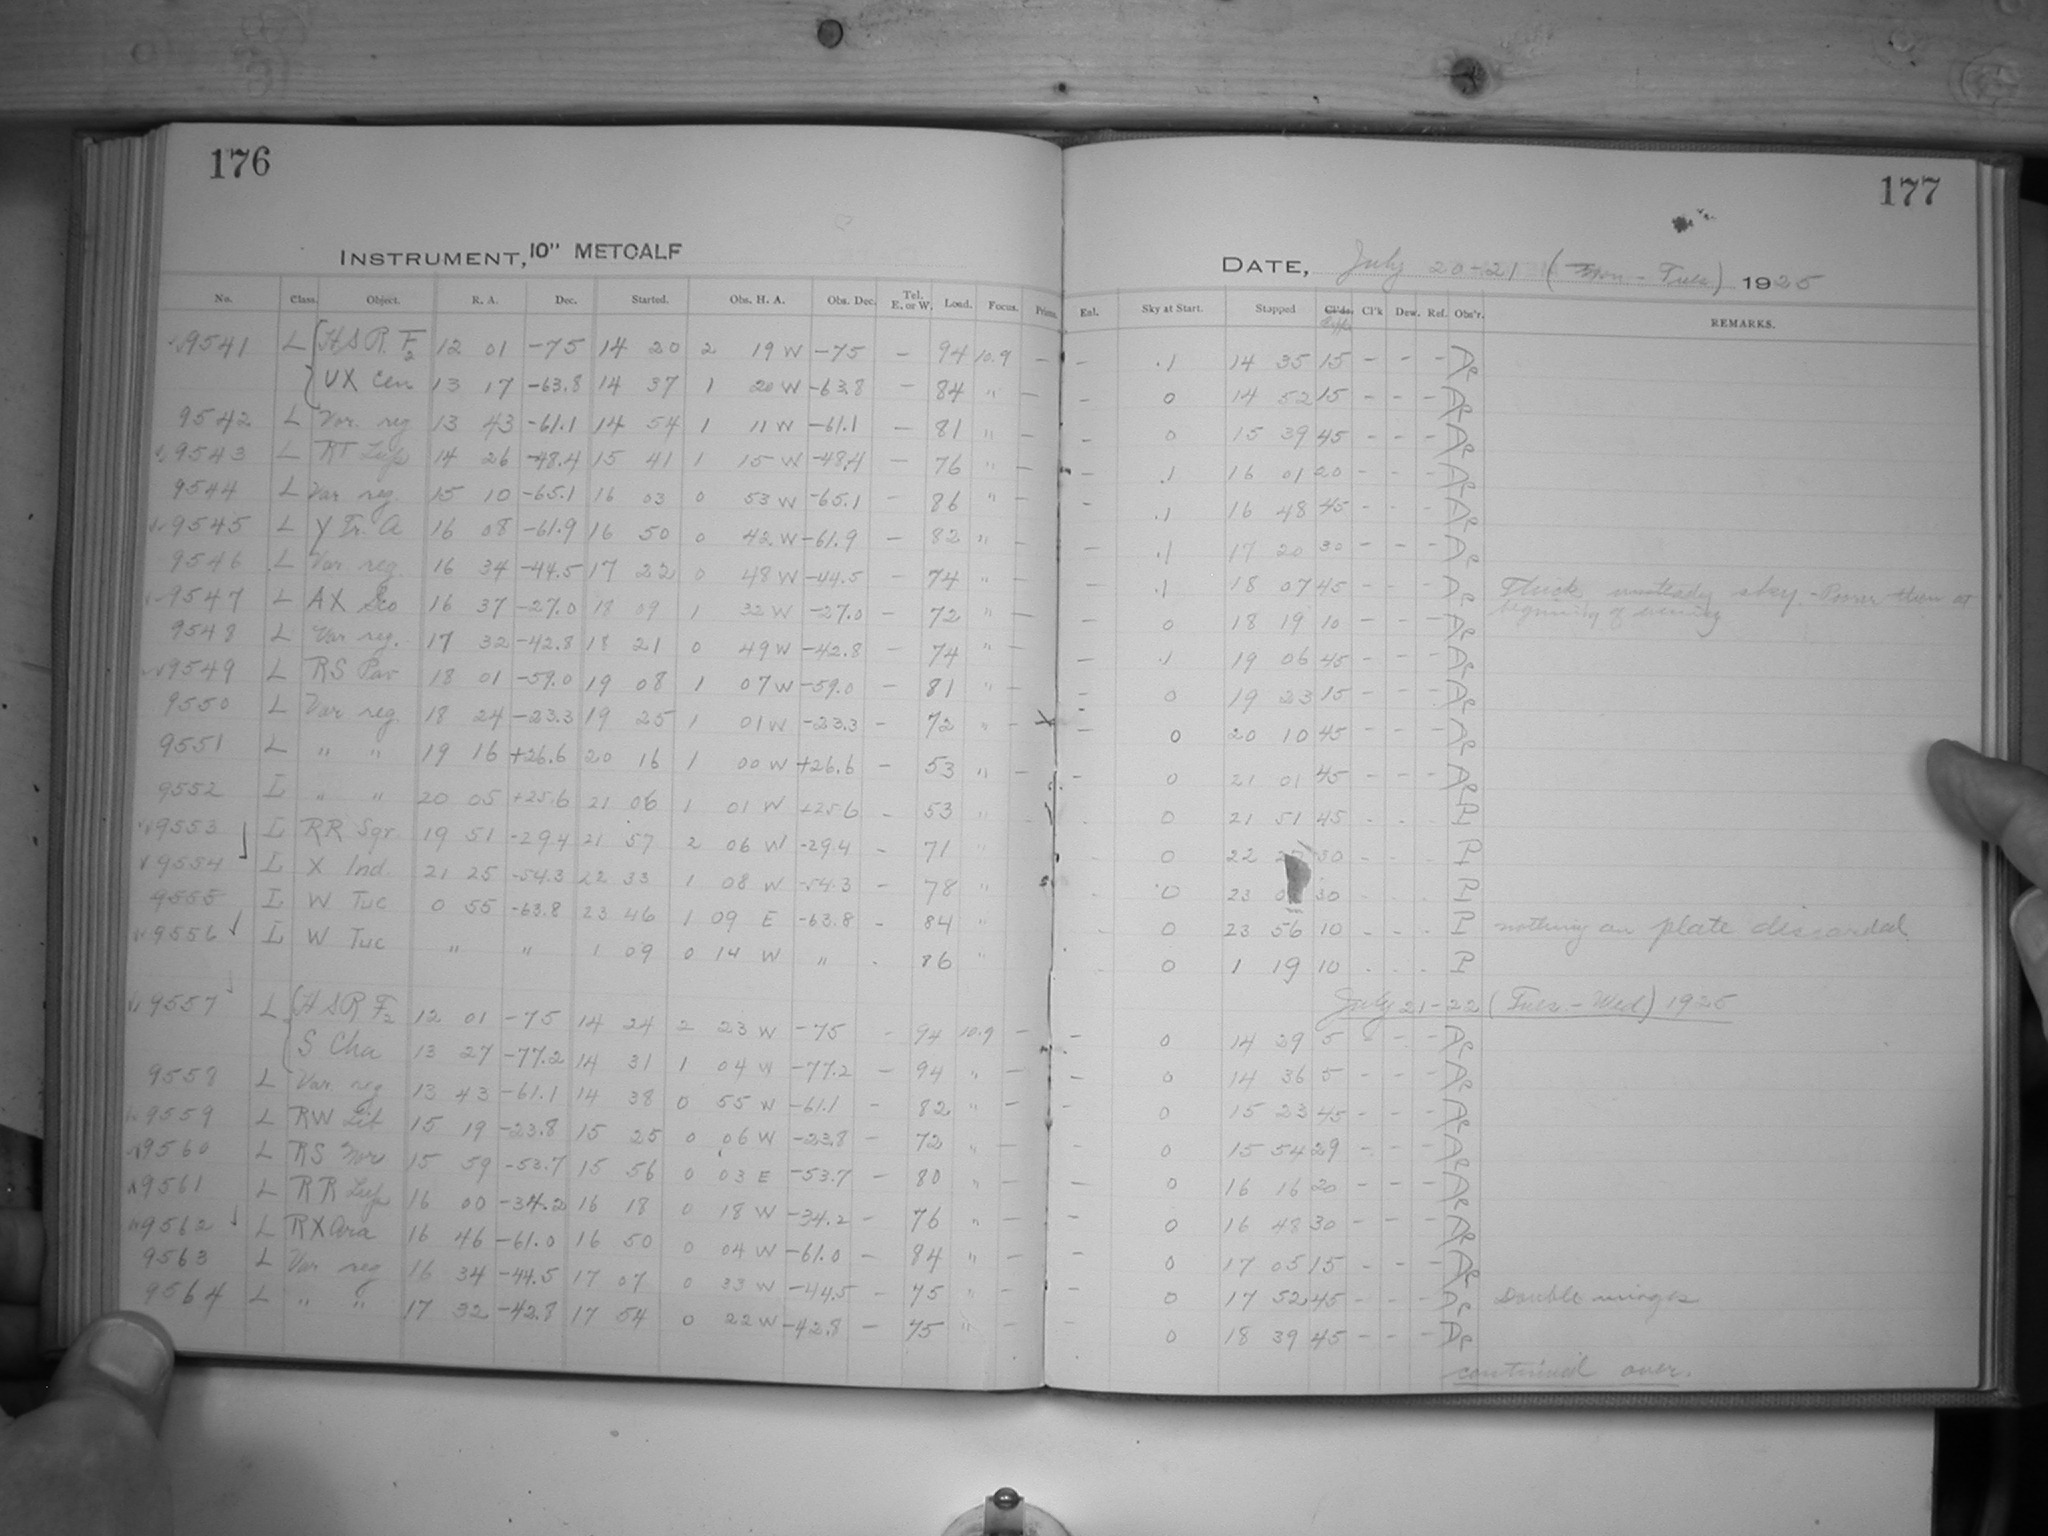 176
INSTRUMENT, 10" METCALF
No. Class. Object. R. A. Dec. Started. Obs. H. A. Obs. Dec. Tel. E. or W. Load. Focus. Prism.
9541 L H S R. F2 12 01 -75 14 20 2 19 W -75 - 94 10.9 -
UX Cen 13 17 -63.8 14 37 1 20 W -63.8 - 84 " -
9542 L Var. reg 13 43 -61.1 14 54 1 11 W -61.1 - 81 " -
9543 L RT Lup 14 26 -48.4 15 41 1 15 W -48.4 - 76 " -
9544 L Var reg. 15 10 -65.1 16 03 0 53 W -65.1 - 86 "
9545 L Y Tr. A 16 08 -61.9 16 50 0 42 W -61.9 - 82 " -
9546 L Var reg 16 34 -44.5 17 22 0 48 W -44.5 - 74 " -
9547 L AX Sco 16 37 -27.0 18 09 1 32 W -27.0 - 72 " -
9548 L Var reg. 17 32 -42.8 18 21 0 49 W -42.8 - 74 " -
9549 L RS Pav 18 01 -59.0 19 08 1 07 W -59.0 - 81 " -
9550 L Var reg. 18 24 -23.3 19 25 1 01 W -23.3 - 72 " - X
9551 L " " 19 16 +26.6 20 16 1 00 W +26.6 - 53 " -
9552 L " " 20 05 +25.6 21 06 1 01 W +25.6 - 53 "
9553 L RR Sgr 19 51 -29.4 21 57 2 06 W -29.4 - 71 "
9554 L X Ind 21 25 -54.3 22 33 1 08 W -54.3 - 78 "
9555 L W Tuc 0 55 -63.8 23 46 1 09 E -63.8 - 84 "
9556 L W Tuc " " 1 09 0 14 W " - 86 "
9557 L H S R F2 12 01 -75 14 24 2 23 W -75 - 94 10.9 -
S Cha 13 27 -77.2 14 31 1 04 W -77.2 - 94 " -
9558 L Var. reg 13 43 -61.1 14 38 0 55 W -61.1 - 82 " -
9559 L RW Lib 15 19 -23.8 15 25 0 06 W -23.8 - 72 "
9560 L RS Nor 15 59 -53.7 15 56 0 03 E -53.7 - 80 "
9561 L RR Lup 16 00 -34.2 16 18 0 18 W -34.2 - 76 " -
9562 L RX Ara 16 46 -61.0 16 50 0 04 W -61.0 - 84 " -
9563 L Var reg 16 34 -44.5 17 07 0 33 W -44.5 - 75 " -
9564 L " " 17 32 -42.8 17 54 0 22 W -42.8 - 75 " -
177
DATE, July 20-21 (Mon - Tues) 1925
Enl. Sky at Start. Stopped Cl'ds. Cl'k Dew. Ref. Obs'r. REMARKS.
- .1 14 35 15 - - -
- 0 14 52 15 - - -
- 0 15 39 45 - - -
- .1 16 01 20 - - -
.1 16 48 45 - - -
- .1 17 20 30 - - -
- .1 18 07 45 - - - Thick, unsteady sky - Poorer than at
beginning of evening
0 18 19 10 - - -
- .1 19 06 45 - - -
- 0 19 23 15 - - -
- 0 20 10 45 - - -
- 0 21 01 45 - - -
0 21 51 45 - - - P
0 22 30 - - - P
0 23 30 - - - P
0 23 56 10 - - - P nothing on plate discarded
0 1 19 10 - - - P
July 21-22 (Tues. - Wed) 1925
- 0 14 29 5 - - -
- 0 14 36 5 - - -
- 0 15 23 45 - - -
- 0 15 54 29 - - -
- 0 16 16 20 - - -
- 0 16 48 30 - - -
- 0 17 05 15 - - -
- 0 17 52 45 - - - Double images
- 0 18 39 45 - - -
continued over.